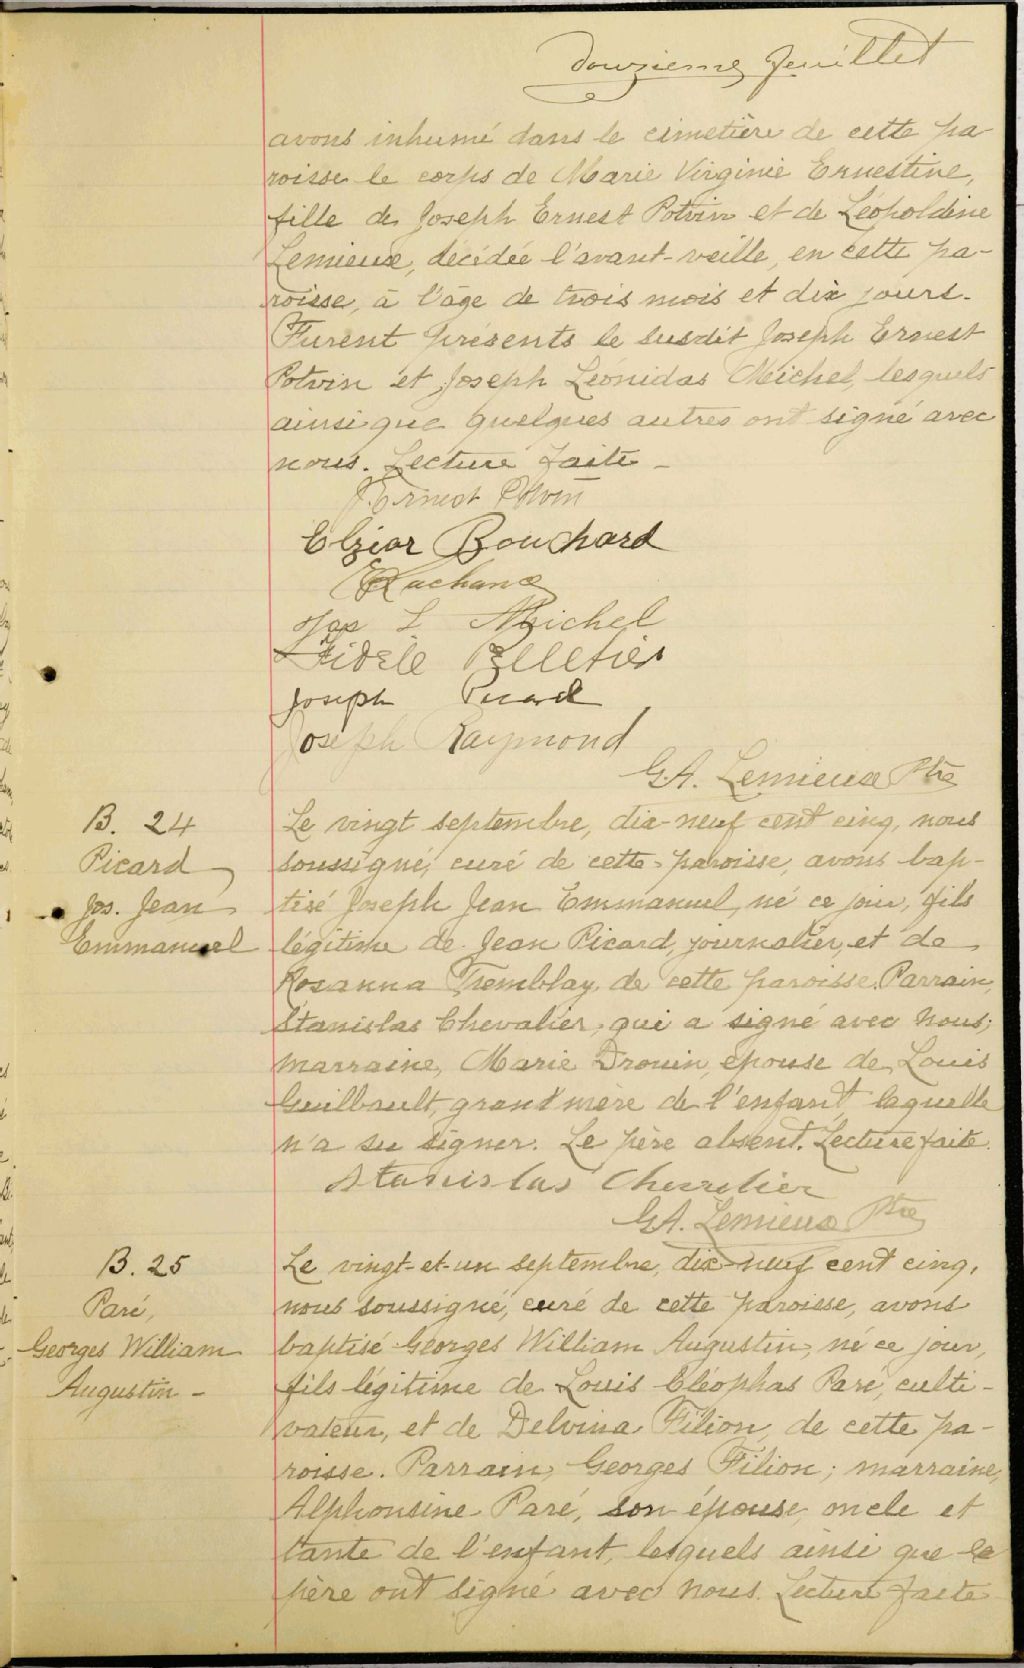 Douzieme feuillet
avons inhumé dans le cimetière de cette pa-
roisse le corps de Marie Virginie Ernestine,
fille de Joseph Ernest Potvin et de Léopoldine
Lemieux, décédée l'avant-veille, en cette pa-
roisse, à l'âge de trois mois et dix jours.
Furent présents le susdit Joseph Ernest
Potvin et Joseph Léonidas Michel, lesquels
ainsi que quelques autres ont signé avec
nous. Lecture faite -
J. Ernest Potvin
Elziar Bouchard
Lachance
Jos L Michel
Fidèle Pelletier
Joseph Picard
Joseph Raymond
G.A. Lemieux Ptre
B. 24
Picard
Jos. Jean
Emmanuel
Le vingt septembre, dix-neuf cent cinq, nous
soussigné, curé de cette paroisse, avons bap-
tisé Joseph Jean Emmanuel, né ce jour, fils
légitime de Jean Picard, journalier, et de
Rosanna Tremblay, de cette paroisse. Parrain,
Stanislas Chevalier, qui a signé avec nous;
marraine, Marie Drouin, épouse de Louis
Guilbault, grand'mère de l'enfant, laquelle
n'a su signer. Le père absent. Lecture faite.
Stanislas Chevelier
G.A. Lemieux Ptre
B. 25
Paré,
Georges William
Augustin -
Le vingt-et-un septembre, dix-neuf cent cinq,
nous soussigné, curé de cette paroisse, avons
baptisé Georges William Augustin, né ce jour,
fils légitime de Louis Cléophas Paré, culti-
vateur, et de Delvina Filion, de cette pa-
roisse. Parrain, Georges Filion; marraine,
Alphonsine Paré, son épouse, oncle et
tante de l'enfant, lesquels ainsi que le
père ont signé avec nous. Lecture faite